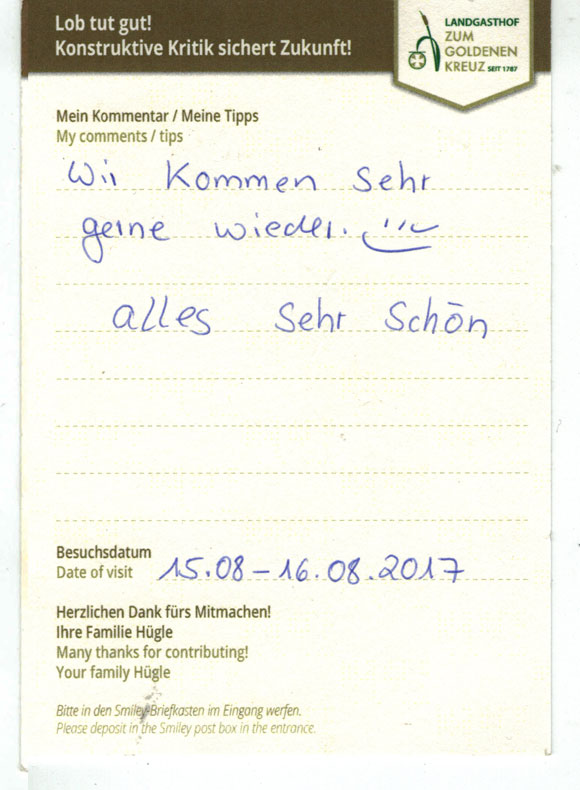 Lob tut gut!
Konstruktive Kritik sichert Zukunft!
LANDGASTHOF
ZUM
GOLDENEN
KREUZ SEIT 1787
Mein Kommentar / Meine Tipps
My comments / tips
Wir kommen sehr
gerne wieder.
alles sehr schön
Besuchsdatum
Date of visit 15.08 – 16.08.2017
Herzlichen Dank fürs Mitmachen!
Ihre Familie Hügle
Many thanks for contributing!
Your family Hügle
Bitte in den Smiley-Briefkasten im Eingang werfen.
Please deposit in the Smiley post box in the entrance.